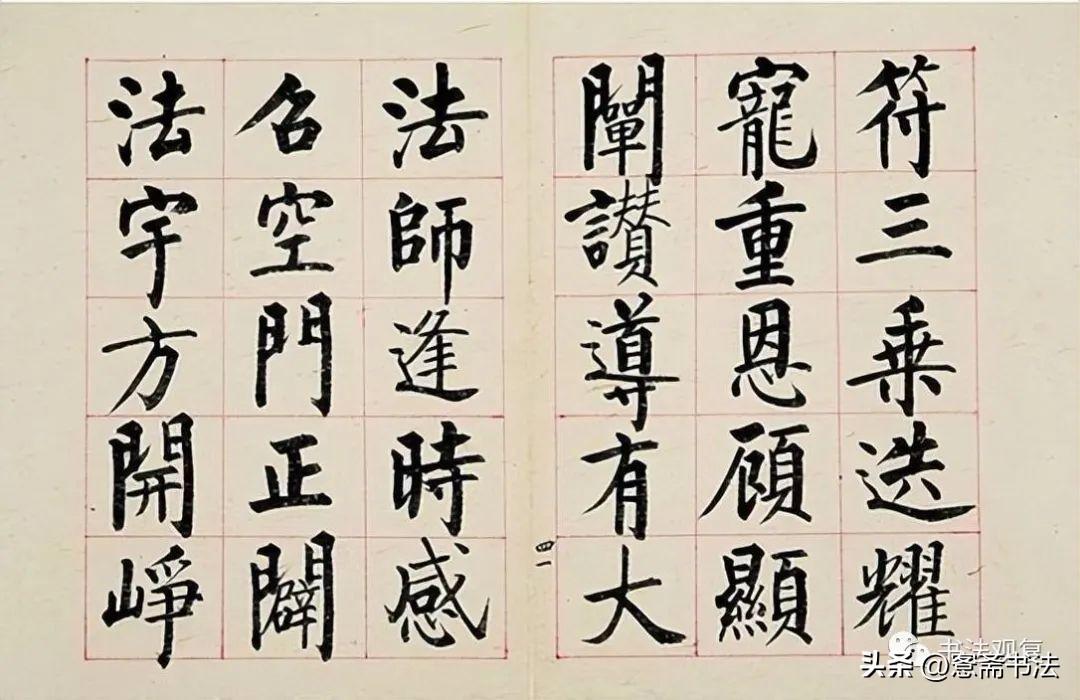 符三乗迭耀
寵重恩顧顯
闡讚導有大
四一
法師逢時感
召空門正闢
法宇方開崢
书法观复
头条 @愙斋书法